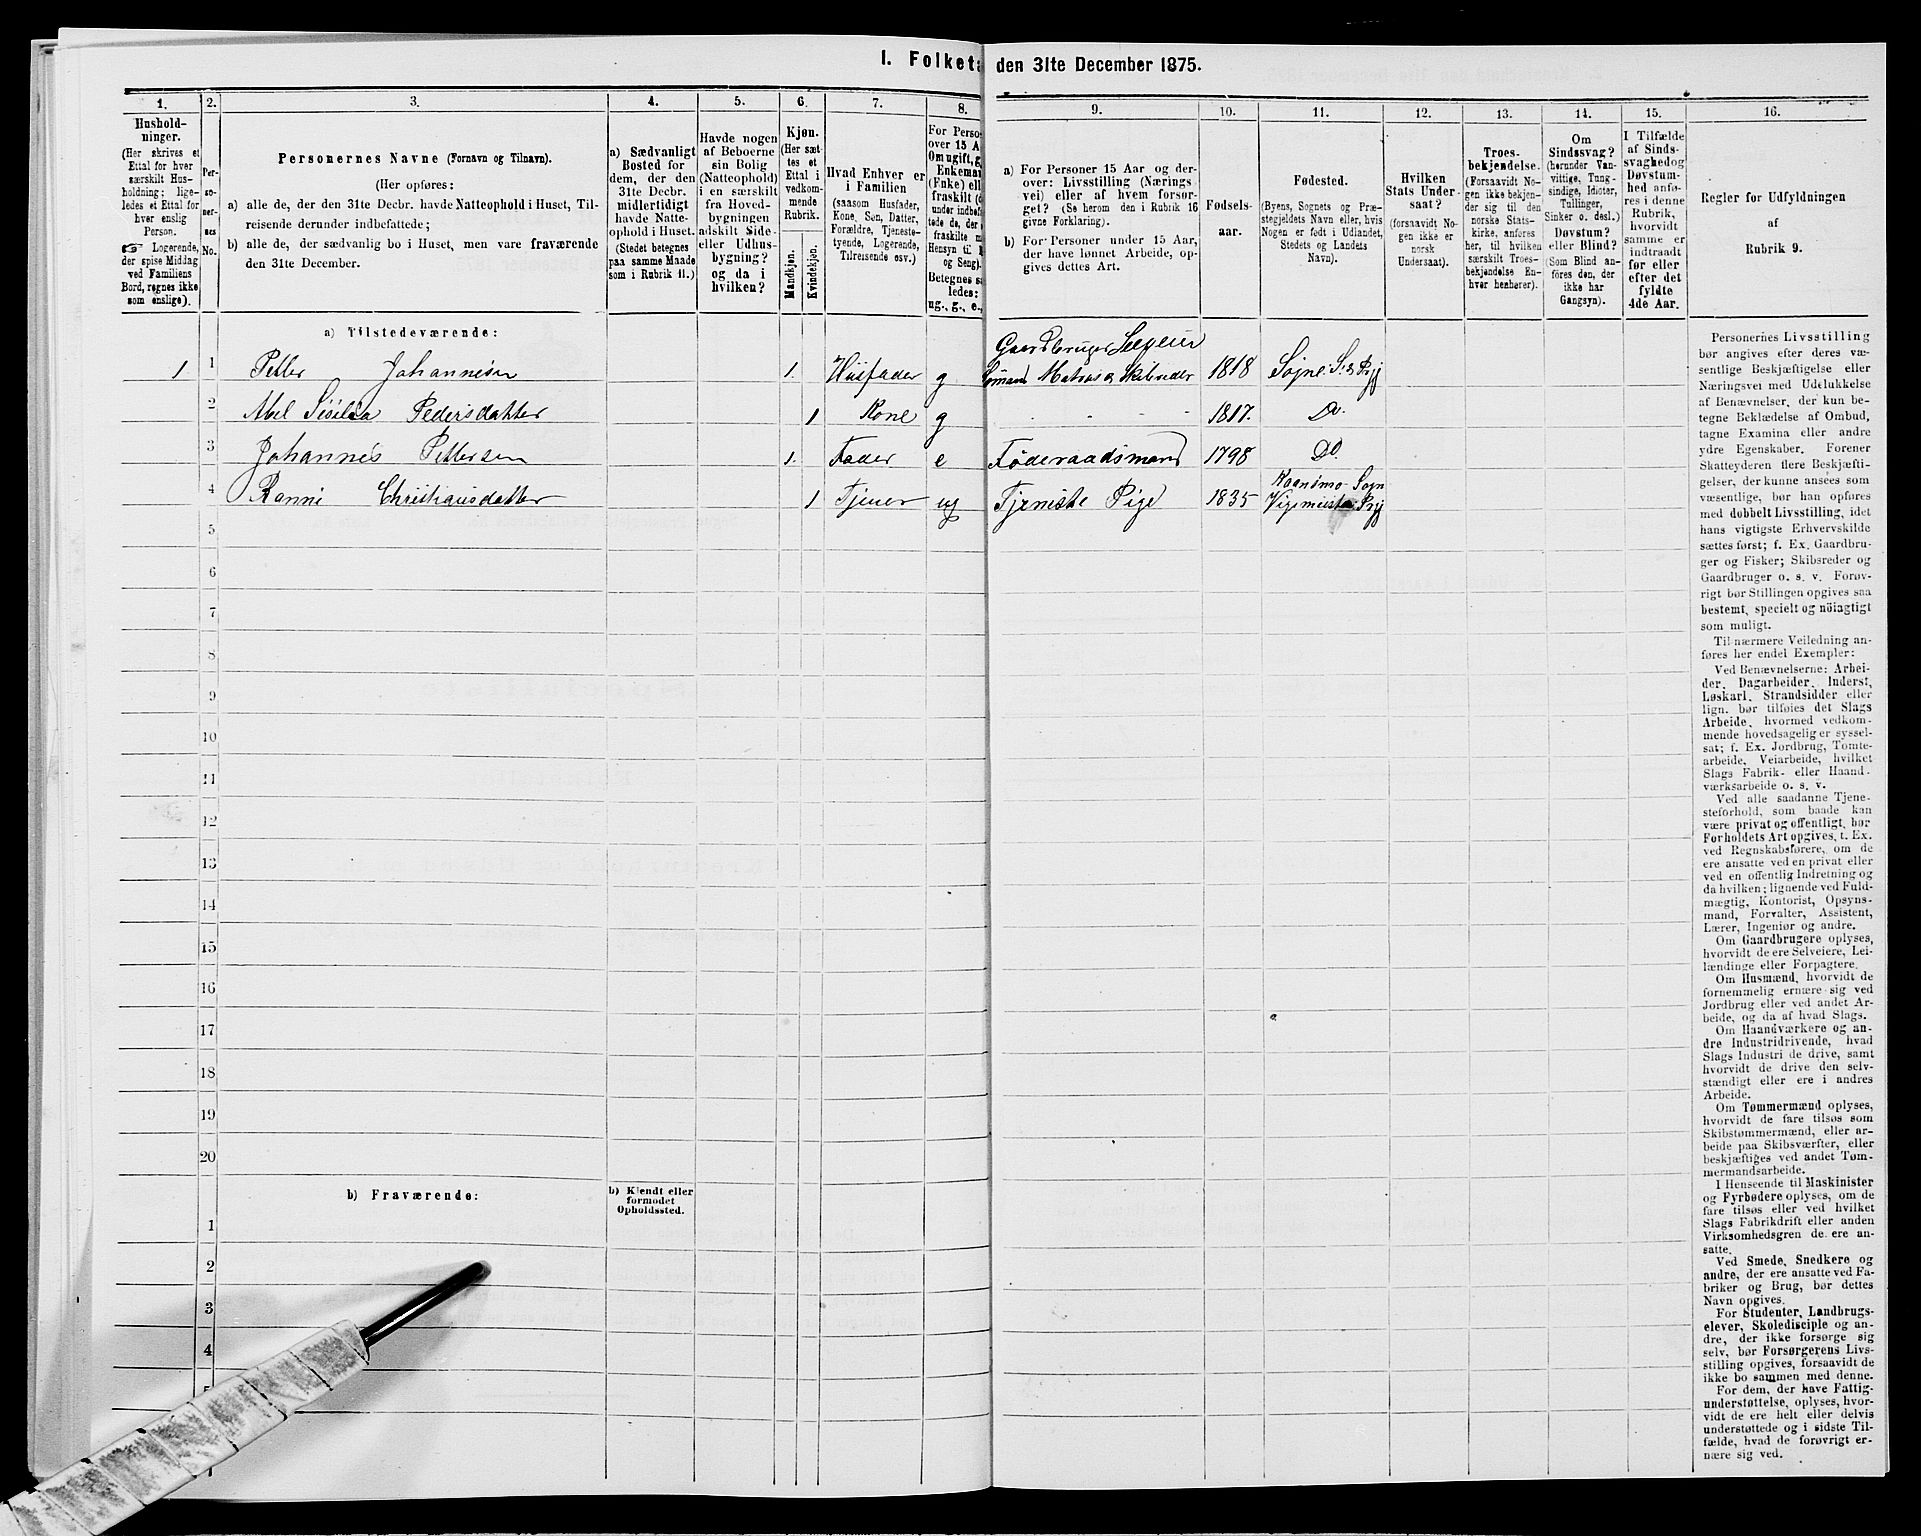 I. Folketa
den 31te December 1875.
1.
Hushold-
ninger.
(Her skrives et
Ettal for hver
særskilt Hus-
holdning; lige-
ledes et Ettal for
hver enslig
Person.
☞ Logerende,
der spise Middag
ved Familiens
Bord, regnes ikke
som enslige).
2.
Per-
so-
ner-
nes
No.
3.
Personernes Navne (Fornavn og Tilnavn).
(Her opføres:
a) alle de, der den 31te Decbr. havde Natteophold i Huset, Til-
reisende derunder indbefattede;
b) alle de, der sædvanlig bo i Huset, men vare fraværende
den 31te December.
4.
a) Sædvanligt
Bosted for
dem, der den
31te Decbr.
midlertidigt
havde Natte-
ophold i Huset.
(Stedet betegnes
paa samme Maade
som i Rubrik 11.)
5.
Havde nogen
af Beboerne
sin Bolig
(Natteophold)
i en særskilt
fra Hoved-
bygningen
adskilt Side-
eller Udhus-
bygning?
og da i
hvilken?
6.
Kjøn.
(Her sæt-
tes et
Ettal i
vedkom-
mende
Rubrik.
Mandkjøn.
Kvindekjøn.
7.
Hvad Enhver er
i Familien
(saasom Husfader,
Kone, Søn, Datter,
Forældre, Tjeneste-
tyende, Logerende,
Tilreisende osv.)
8.
For Perso
over 15 A
Om ugift, g
Enkema
(Enke) ell
fraskilt (
under indbef
tede de, der
fraskilte m
Hensyn til
og Seng).
Betegnes s
ledes:
ug., g., e.,
9.
a) For Personer 15 Aar og der-
over: Livsstilling (Nærings
vei) eller af hvem forsør-
get? (Se herom den i Rubrik 16
givne Forklaring).
b) For Personer under 15 Aar,
der have lønnet Arbeide, op-
gives dettes Art.
10.
Fødsels-
aar.
11.
Fødested.
(Byens, Sognets og Præ-
stegjeldets Navn eller, hvis
Nogen er født i Udlandet,
Stedets og Landets
Navn).
12.
Hvilken
Stats Under-
saat?
(forsaavidt No-
gen ikke er
norsk
Undersaat).
13.
Troes-
bekjendelse.
(Forsaavidt No-
gen ikke bekjen-
der sig til den
norske Stats-
kirke, anføres
her, til hvilken
særskilt Troes-
bekjendelse En-
hver henhører).
14.
Om
Sindssvag?
(herunder Van-
vittige, Tung-
sindige, Idioter,
Tullinger,
Sinker o. desl.)
Døvstum?
eller Blind?
(Som Blind an-
føres den, der
ikke har
Gangsyn).
15.
I Tilfælde
af Sinds-
svaghed og
Døvstum-
hed anfø-
res i denne
Rubrik,
hvorvidt
samme er
indtraadt
før eller
efter det
fyldte
4de Aar.
16.
Regler for Udfyldningen
af
Rubrik 9.
a) Tilstedeværende:
Gaardbruger Selveier
1 1 Petter Johannesen 1. Husfader g Sømand Matros & Skibsreder 1818 Sogne S: & Prgj
2 Abel Sisilia Pedersdatter 1 Kone g 1817. Do.
3 Johannes Pettersen 1. Fader e Føderaadsmand 1798 Do.
4 Ranni Christiansdatter 1 Tjener ug Tjeneste Pige 1835 Sogn
Prgj
5
6
7
8
9
10
11
12
13
14
15
16
17
18
19
20
b) Fraværende:
b) Kjendt eller
formodet
Opholdssted.
1
2
3
4
5
Personernes Livsstilling
bør angives efter deres væ-
sentlige Beskjæftigelse eller
Næringsvei med Udelukkelse
af Benævnelser, der kun be-
tegne Beklædelse af Ombud,
tagne Examina eller andre
ydre Egenskaber. Forener
Skatteyderen flere Beskjæfti-
gelser, der kunne ansées som
væsentlige, bør han opføres
med dobbelt Livsstilling, idet
hans vigtigste Erhvervskilde
sættes først; f. Ex. Gaardbru-
ger og Fisker; Skibsreder og
Gaardbruger o. s. v. Forøv-
rigt bør Stillingen opgives saa
bestemt, specielt og nöiagtigt
som muligt.
Til nærmere Veiledning an-
føres her endel Exempler:
Ved Benævnelserne: Arbei-
der, Dagarbeider, Inderst,
Løskarl, Strandsidder eller
lign. bør tilføies det Slags
Arbeide, hvormed vedkom-
mende hovedsagelig er syssel-
sat; f. Ex. Jordbrug, Tomte-
arbeide, Veiarbeide, hvilket
Slags Fabrik- eller Haand-
værksarbeide o. s. v.
Ved alle saadanne Tjene-
steforhold, som baade kan
være privat og offentligt, bør
Forholdets Art opgives, t. Ex.
ved Regnskabsførere, om de
ere ansatte ved en privat eller
ved en offentlig Indretning og
da hvilken; lignende ved Fuld-
mægtig, Kontorist, Opsyns-
mand, Forvalter, Assistent,
Lærer, Ingeniør og andre.
Om Gaardbrugere oplyses,
hvorvidt de ere Selveiere, Lei-
lændinge eller Forpagtere.
Om Husmænd, hvorvidt de
fornemmelig ernære sig ved
Jordbrug eller ved andet Ar-
beide, og da af hvad Slags.
Om Haandværkere og an-
dre Industridrivende, hvad
Slags Industri de drive, samt
hvorvidt de drive den selv-
stændigt eller ere i andres
Arbeide.
Om Tømmermænd oplyses,
hvorvidt de fare tilsøs som
Skibstømmermænd, eller ar-
beide paa Skibsværfter, eller
beskjæftiges ved andet Tøm-
mermandsarbeide.
I Henseende til Maskinister
og Fyrbødere oplyses, om de
fare tilsøs eller ved hvilket
Slags Fabrikdrift eller anden
Virksomhedsgren de ere an-
satte.
Ved Smede, Snedkere og
andre, der ere ansatte ved Fa-
briker og Brug, bør dettes
Navn opgives.
For Studenter, Landbrugs-
elever, Skoledisciple og an-
dre, der ikke forsørge sig
selv, bør Forsørgerens Livs-
stilling opgives, forsaavidt de
ikke bo sammen med denne.
For dem, der have Fattig-
understøttelse, oplyses, hvor-
vidt de ere helt eller delvis
understøttede og i sidste Til-
fælde, hvad de forøvrigt er-
nære sig ved.